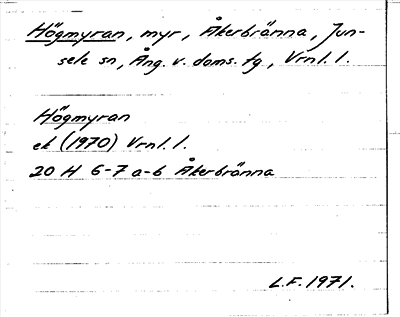 Högmyran, myr, Åkerbränna, Jun-
sele sn, Ång. v. doms. tg., Vrnl. l.
Högmyran
ek (1970) Vrnl. l.
20 H 6-7 a-b Åkerbränna
L.F. 1971.